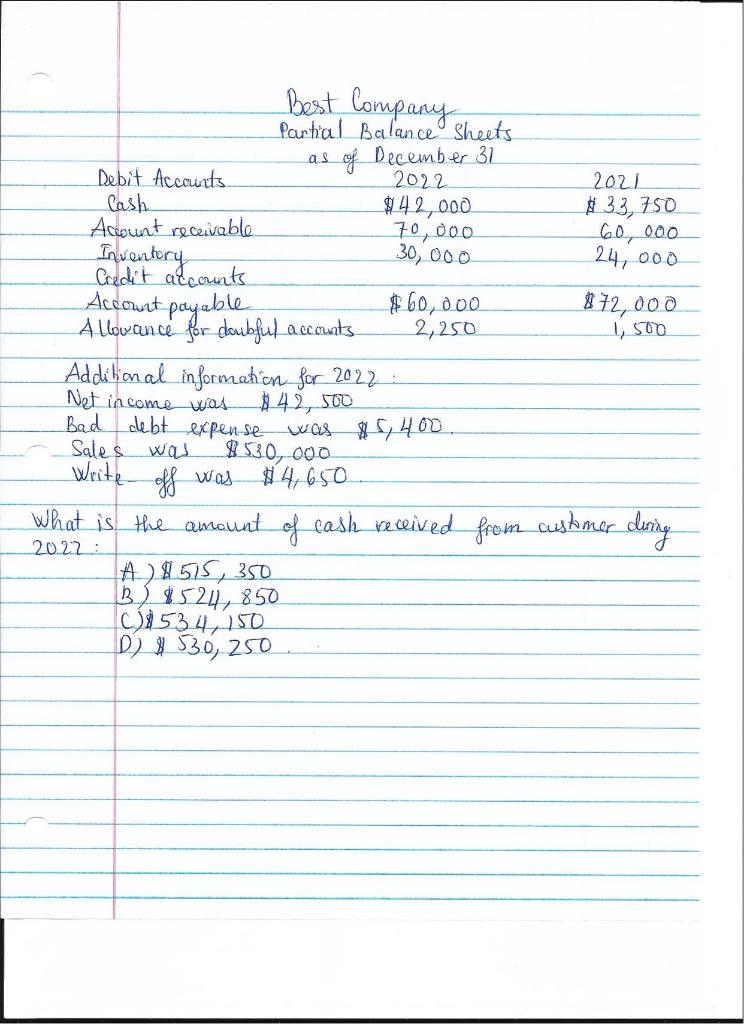 Best Company
Partial Balance Sheets
as of December 31
Debit Accounts 2022 2021
Cash $42,000 $33,750
Account receivable 70,000 60,000
Inventory 30,000 24,000
Credit accounts
Account payable $60,000 $72,000
Allowance for doubful accounts 2,250 1,500
Additional information for 2022:
Net income was $42,500
Bad debt expense was $5,400.
Sales was $530,000
Write-off was $4,650.
What is the amount of cash received from customer during
2022:
A) $515,350
B) $524,850
C) $534,150
D) $530,250.